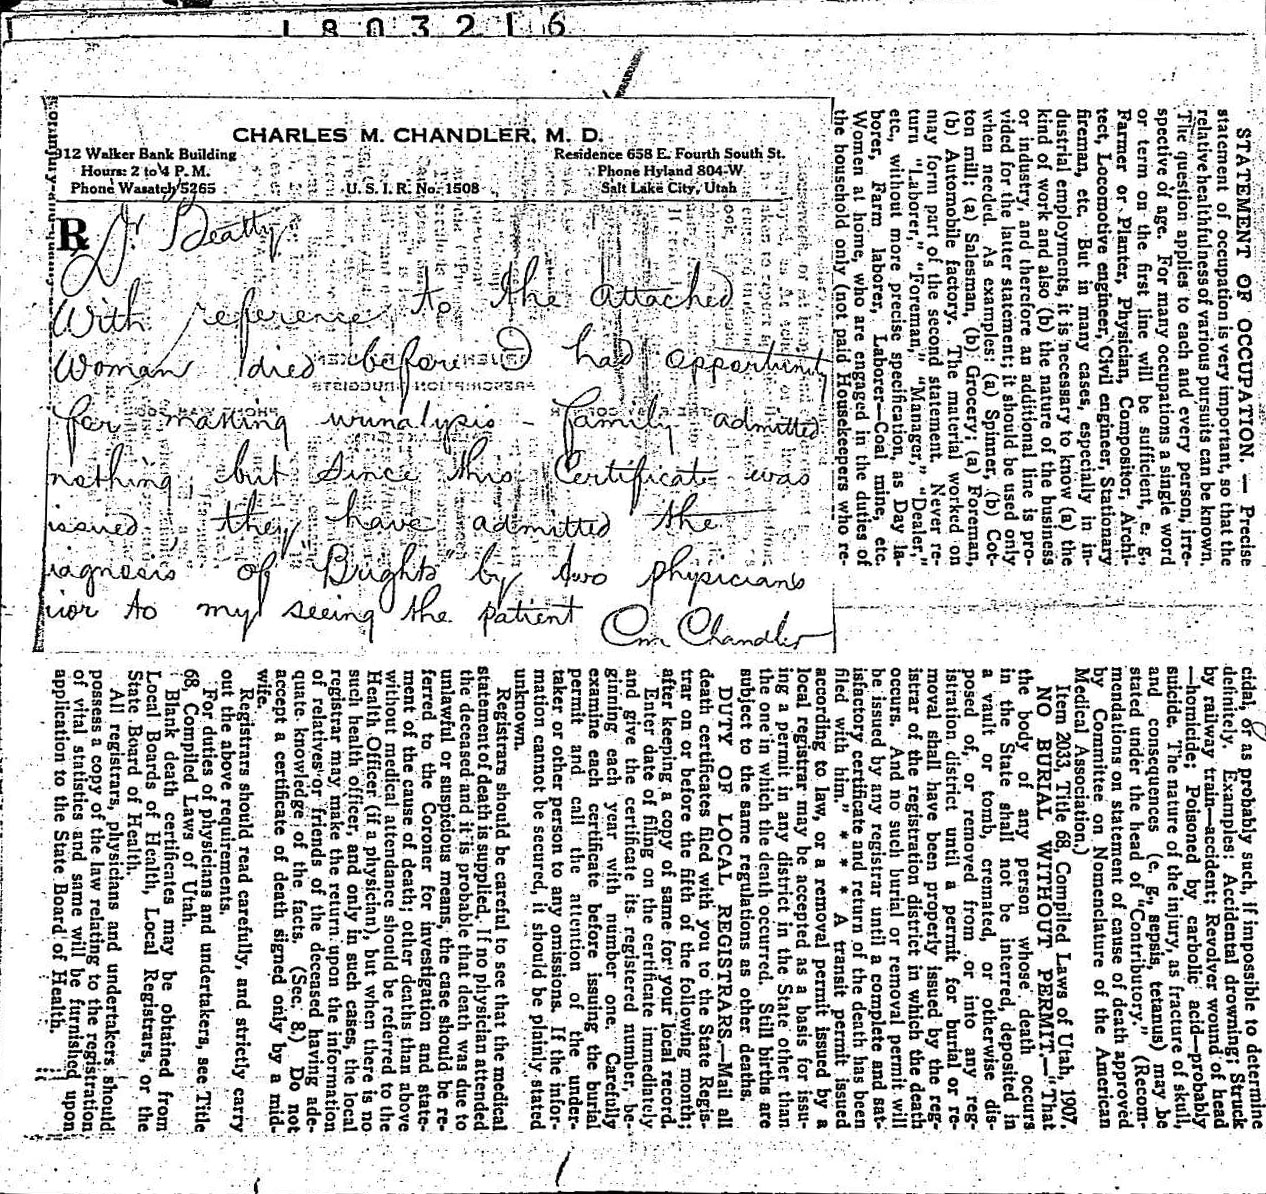 1803216
CHARLES M. CHANDLER, M. D.
912 Walker Bank Building
Hours: 2 to 4 P. M.
Phone Wasatch 5265
U. S. I. R. No. 1508
Residence 658 E. Fourth South St.
Phone Hyland 804-W
Salt Lake City, Utah
℞ Dr Beatty
With reference to the attached
Woman died before I had opportunity
for making urinalysis - family admitted
nothing, but since this Certificate was
issued, they have admitted the
iagnosis of "Brights" by two physicians
ior to my seeing the patient
Cm Chandler
STATEMENT OF OCCUPATION. — Precise
statement of occupation is very important, so that the
relative healthfulness of various pursuits can be known.
The question applies to each and every person, irre-
spective of age. For many occupations a single word
or term on the first line will be sufficient, e. g.,
Farmer or Planter, Physician, Compositor, Archi-
tect, Locomotive engineer, Civil engineer, Stationary
fireman, etc. But in many cases, especially in in-
dustrial employments, it is necessary to know (a) the
kind of work and also (b) the nature of the business
or industry, and therefore an additional line is pro-
vided for the later statement; it should be used only
when needed. As examples: (a) Spinner, (b) Cot-
ton mill; (a) Salesman, (b) Grocery; (a) Foreman,
(b) Automobile factory. The material worked on
may form part of the second statement. Never re-
turn "Laborer," "Foreman," "Manager," "Dealer,"
etc., without more precise specification, as Day la-
borer, Farm laborer, Laborer—Coal mine, etc.
Women at home, who are engaged in the duties of
the household only (not paid Housekeepers who re-
cidal, or as probably such, if impossible to determine
definitely. Examples: Accidental drowning; Struck
by railway train—accident; Revolver wound of head
—homicide; Poisoned by carbolic acid—probably
suicide. The nature of the injury, as fracture of skull,
and consequences (e. g., sepsis, tetanus) may be
stated under the head of "Contributory." (Recom-
mendations on statement of cause of death approved
by Committee on Nomenclature of the American
Medical Association.)
Item 2033, Title 68, Compiled Laws of Utah, 1907.
NO BURIAL WITHOUT PERMIT.—"That
the body of any person whose death occurs
in the State shall not be interred, deposited in
a vault or tomb, cremated, or otherwise dis-
posed of, or removed from or into any reg-
istration district until a permit for burial or re-
moval shall have been properly issued by the reg-
istrar of the registration district in which the death
occurs. And no such burial or removal permit will
be issued by any registrar until a complete and sat-
isfactory certificate and return of the death has been
filed with him." * * * A transit permit issued
according to law, or a removal permit issued by a
local registrar may be accepted as a basis for issu-
ing a permit in any district in the State other than
the one in which the death occurred. Still births are
subject to the same regulations as other deaths.
DUTY OF LOCAL REGISTRARS.—Mail all
death certificates filed with you to the State Regis-
trar on or before the fifth of the following month;
after keeping a copy of same for your local record.
Enter date of filing on the certificate immediately
and give the certificate its registered number, be-
ginning each year with number one. Carefully
examine each certificate before issuing the burial
permit and call the attention of the under-
taker or other person to any omissions. If the infor-
mation cannot be secured, it should be plainly stated
unknown.
Registrars should be careful to see that the medical
statement of death is supplied. If no physician attended
the deceased and it is probable that death was due to
unlawful or suspicious means, the case should be re-
ferred to the Coroner for investigation and state-
ment of the cause of death; other deaths than above
without medical attendance should be referred to the
Health Officer (if a physician), but when there is no
such health officer, and only in such cases, the local
registrar may make the return upon the information
of relatives or friends of the deceased having ade-
quate knowledge of the facts. (Sec. 8.) Do not
accept a certificate of death signed only by a mid-
wife.
Registrars should read carefully, and strictly carry
out the above requirements.
For duties of physicians and undertakers, see Title
68, Compiled Laws of Utah.
Blank death certificates may be obtained from
Local Boards of Health, Local Registrars, or the
State Board of Health.
All registrars, physicians and undertakers should
possess a copy of the law relating to the registration
of vital statistics and same will be furnished upon
application to the State Board of Health.